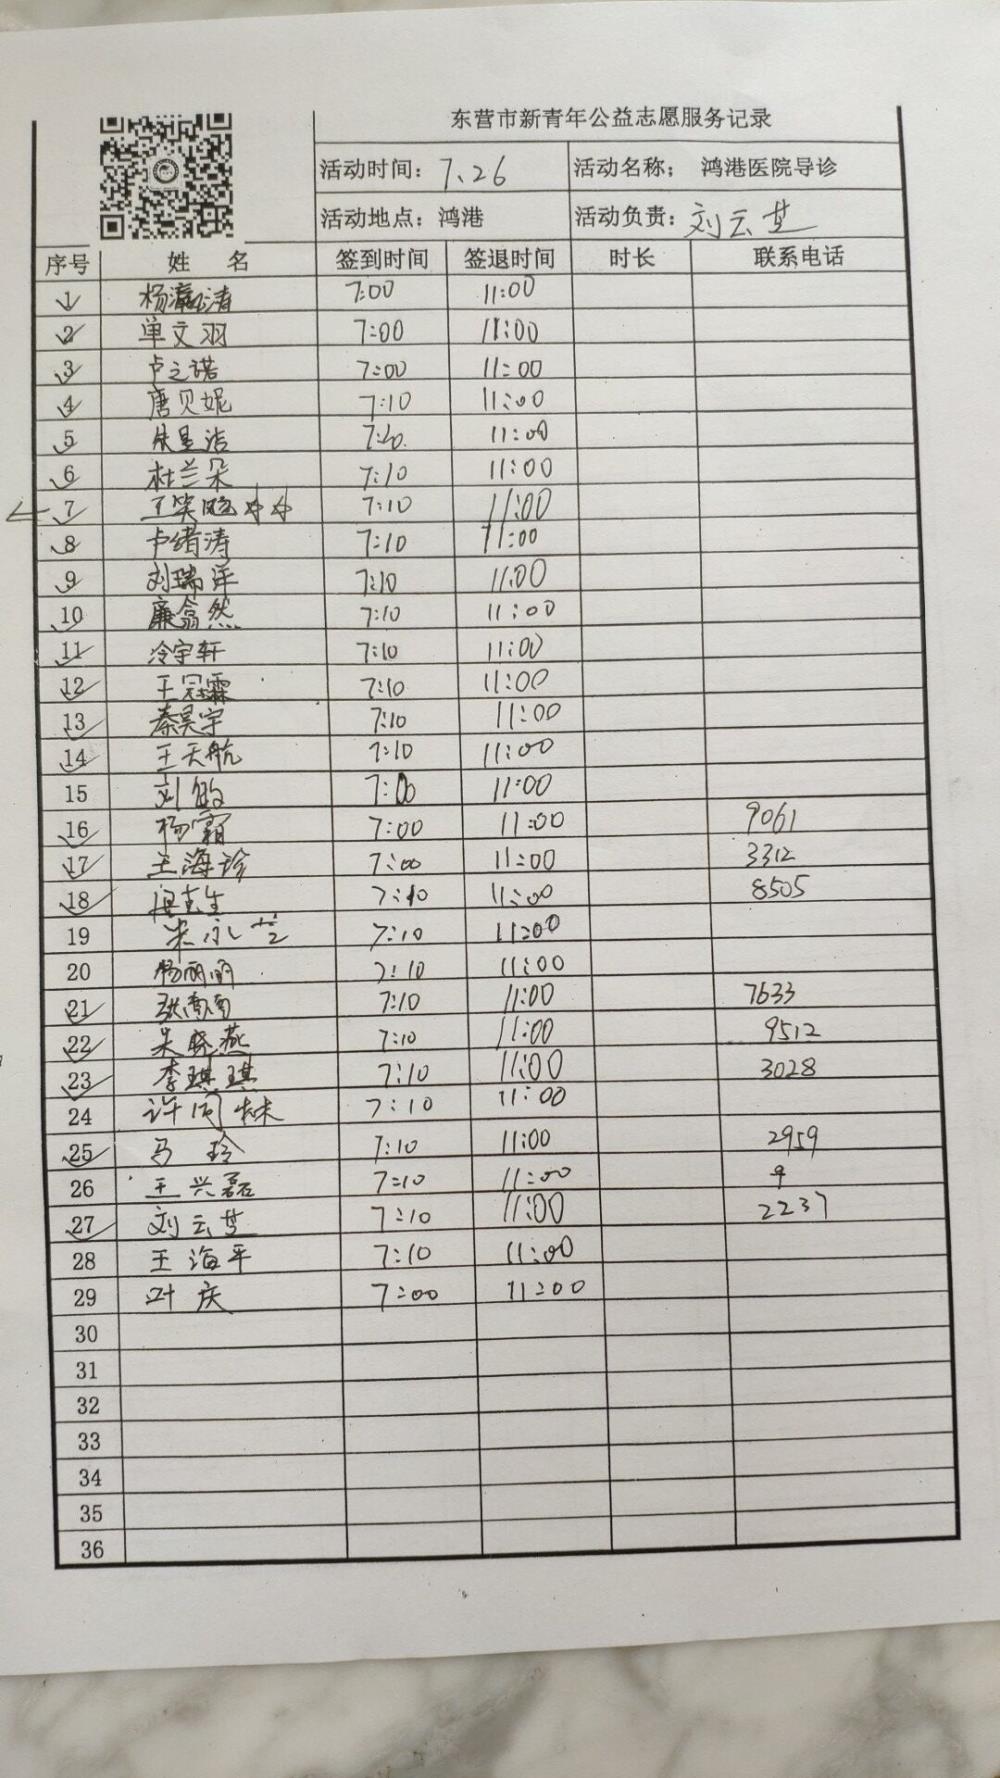 东营市新青年公益志愿服务记录
活动时间：7.26 活动名称； 鸿港医院导诊
活动地点：鸿港 活动负责：刘云芝
序号 姓 名 签到时间 签退时间 时长 联系电话
1 杨瀛涛 7:00 11:00
2 单文羽 7:00 11:00
3 卢之诺 7:00 11:00
4 唐贝妮 7:10 11:00
5 朱星洁 7:10 11:00
6 杜兰朵 7:10 11:00
7 王笑 7:10 11:00
8 卢绪涛 7:10 11:00
9 刘瑞洋 7:10 11:00
10 廉翕然 7:10 11:00
11 冷宇轩 7:10 11:00
12 王冠霖 7:10 11:00
13 秦昊宇 7:10 11:00
14 王天航 7:10 11:00
15 刘 11:00
16 杨霜 7:00 11:00 9061
17 王海珍 7:00 11:00 3312
18 7:10 11:00 8505
19 朱永芝 7:10 11:00
20 杨丽丽 7:10 11:00
21 张南南 7:10 11:00 7633
22 吴晓燕 7:10 11:00 9512
23 李琪琪 7:10 11:00 3028
24 许同林 7:10 11:00
25 马玲 7:10 11:00 2959
26 王兴磊 7:10 11:00 9
27 刘云芝 7:10 11:00 2237
28 王海平 7:10 11:00
29 叶庆 7:00 11:00
30
31
32
33
34
35
36